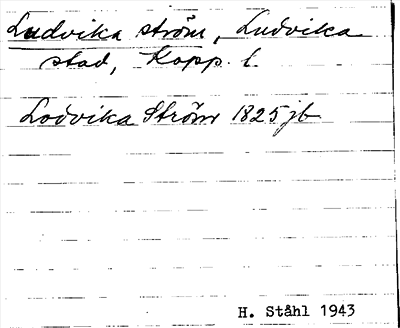 Ludvika ström, Ludvika
stad, Kopp. l.
Lodvika Ström 1825 jb
H. Ståhl 1943